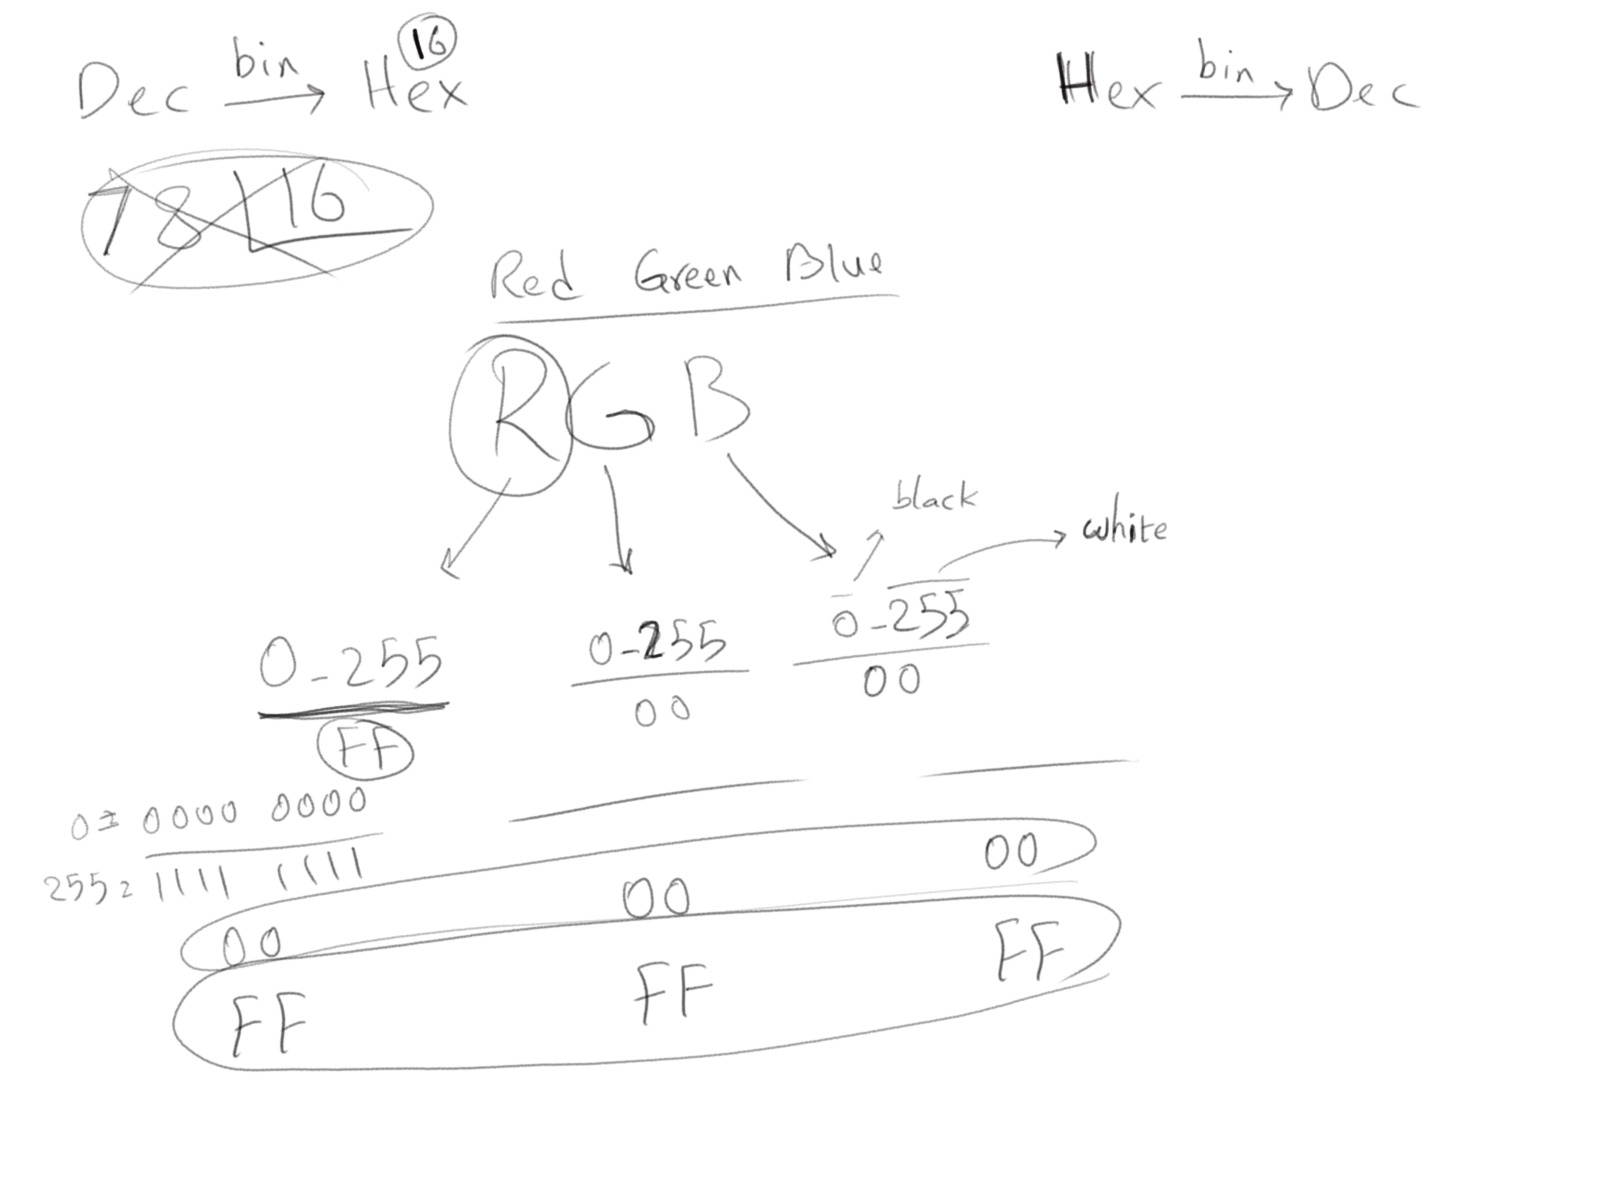 Dec bin → Hex 16
Hex bin → Dec
78 16
Red Green Blue
R G B
black
white
0-255
0-255
0-255
FF
00
00
0= 0000 0000
255= 1111 1111
00 00 00
FF FF FF